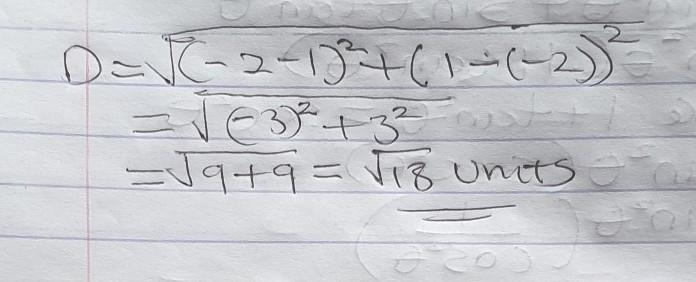 D=√(-2-1)²+(1-(-2))²
=√(-3)²+3²
=√9+9=√18 units